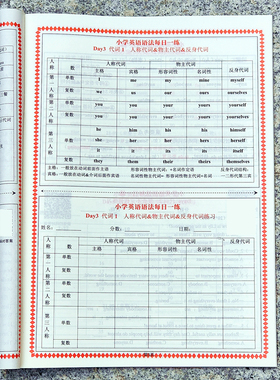 小学英语语法每日一练
Day3 代词1 人称代词&物主代词&反身代词
人称 数 人称代词 物主代词 反身代词
主格 宾格 形容词性 名词性
第一人称 单数 I me my mine myself
复数 we us our ours ourselves
第二人称 单数 you you your yours yourself
复数 you you your yours yourselves
第三人称 单数 he him his his himself
she her her hers herself
it it its its itself
复数 they them their theirs themselves
主格:一般放在动词前面作主语
形容词性物主代词:+名词作定语
反身代词结构:
宾格:一般放在动词&介词后面作宾语
名词性物主代词=形容词性物主代词+名词
小学英语语法每日一练
Day3 代词1 人称代词&物主代词&反身代词练习
姓名: 分数: 日期:
人称 数 人称代词 物主代词 反身代词
主格 宾格 形容词性 名词性
第一人称 单数
复数
第二人称 单数
复数
第三人称 单数
复数